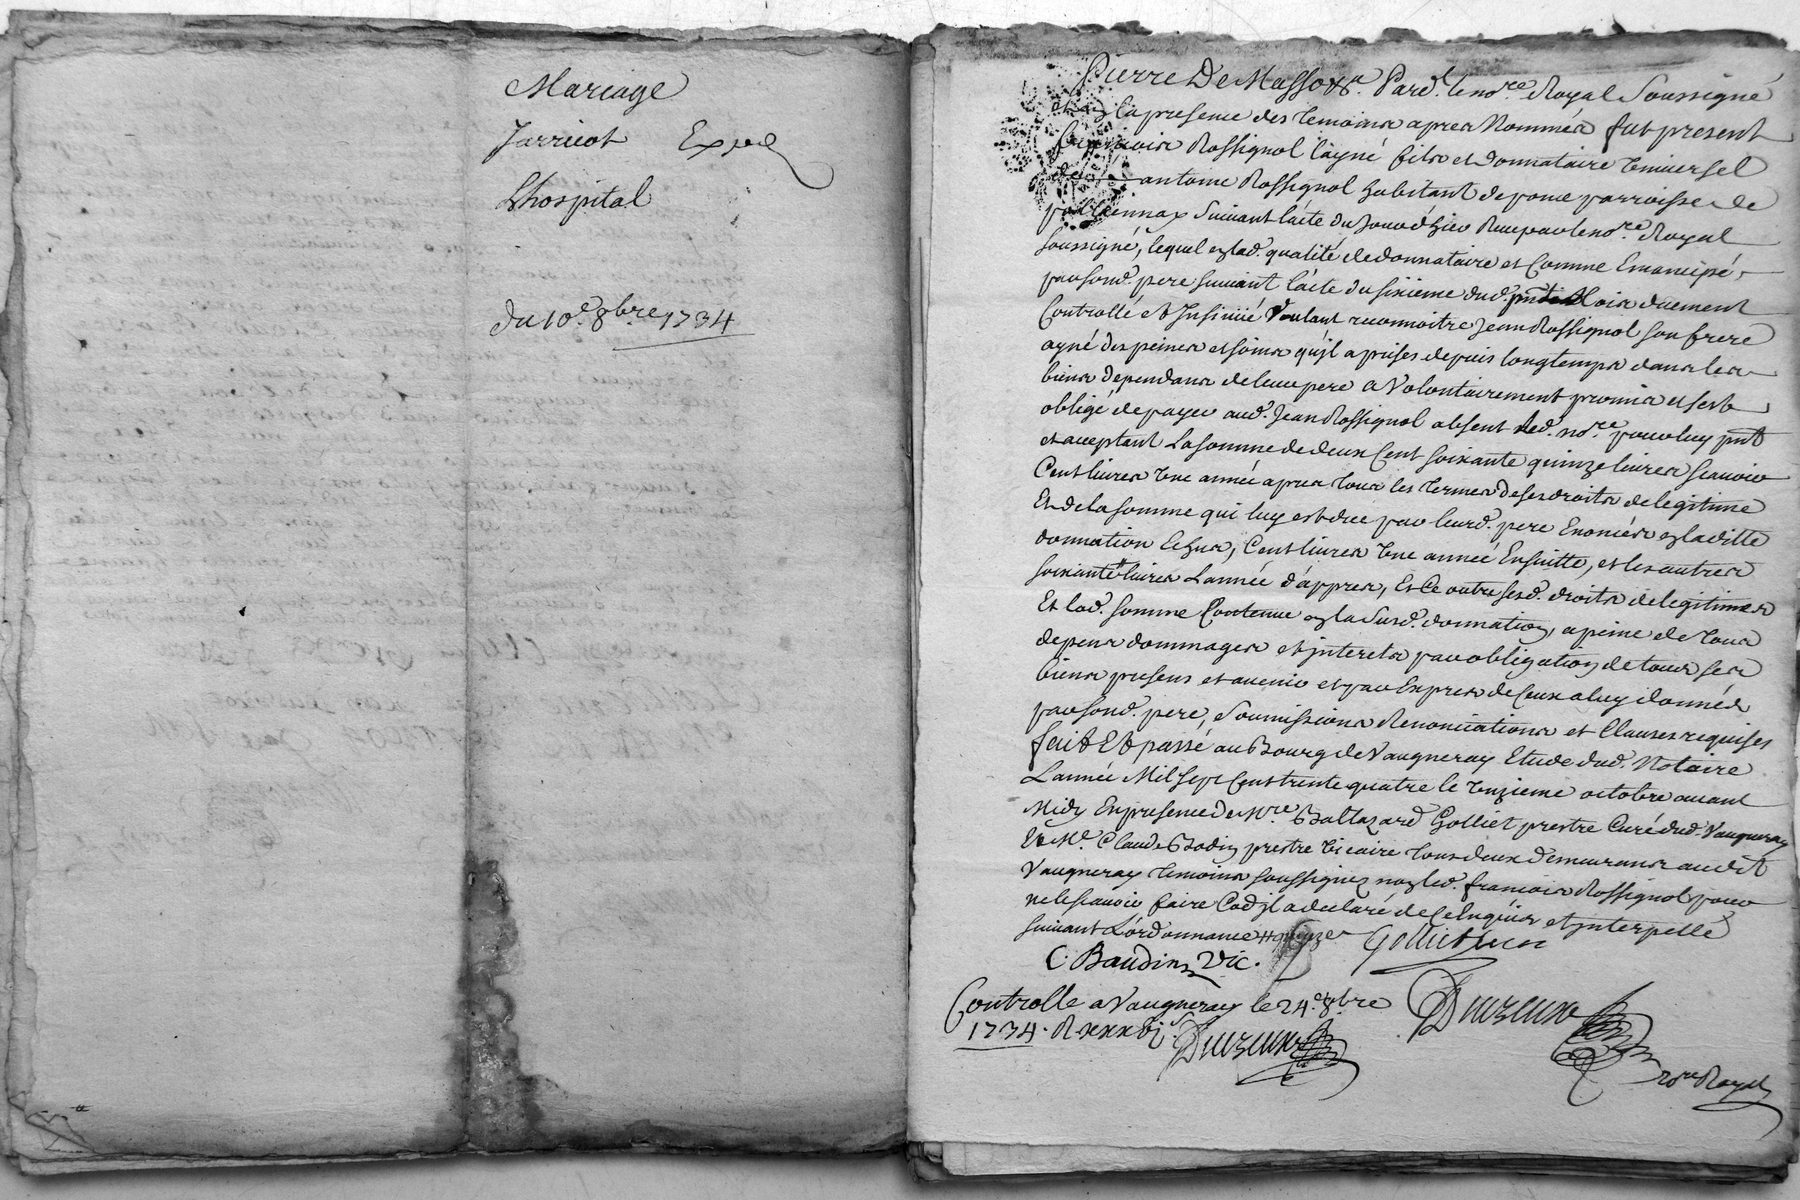 Mariage
Jarricot Exped
Lhospital
du 10.e 8bre 1734
Pierre De Masso &a. Pard.t le no.re Royal Soussigné
et en la presence des temoins apres Nommés fut present
françois Rossignol l'ayné fils et donnataire Universel
de antoine Rossignol habitant de parroisse de
suivant l'acte du Jour d'hier Receu par le no.re Royal
soussigné, lequel en lad. qualité de donnataire et Comme Emancipé
par sond. pere suivant l'acte du sixieme dud. pnt Mois duement
Controllé et Insinüé Voulant reconnoitre Jean Rossignol son frere
ayné des peines et soins qu'jl a prises depuis longtemps dans les
biens dependans de leur pere a Volontairement promis et sest
obligé de payer aud. Jean Rossignol absent led. no.re pour luy pnt
et aceptant La somme de deux Cent soixante quinze livres scauoir
Cent livres Une année apres tous les termes de ses droits de legitime
Et de la somme qui luy est due par leurd. pere Enoncés en laditte
donnation Echus, Cent livres Une année Ensuitte, et les autres
soixante # livres L'année d'appres, Et Ce outre sesd. droits de legitimes
Et lad. somme Contenue en la susd. donnation, a peine de tous
depens dommages et jnterets par obligation de tous ses
biens presens et auenir et par Expres de Ceux a luy donnés
par sond. pere, Soumissions Renonciations et Clauses requises
fait Et passé au Bourg de Vaugneray Etude dud. Notaire
L'année Mil sept Cens trente quatre le Unzieme octobre auant
Midy En presence de M.re Baltazard Golliet prestre Curé dud. Vaugneray
Et M.e Claude Bodin prestre Vicaire tous deux demeurans audit
Vaugneray temoins soussignez non led. françois Rossignol pour
ne le scauoir faire Co'd jl a declaré de Ce Enquis et jnterpellé
suivant L'ordonnance # quinze Golliet
C. Baudin Vic.
Controlle a Vaugneray le 24.e 8bre
1734. R
no.re Royal